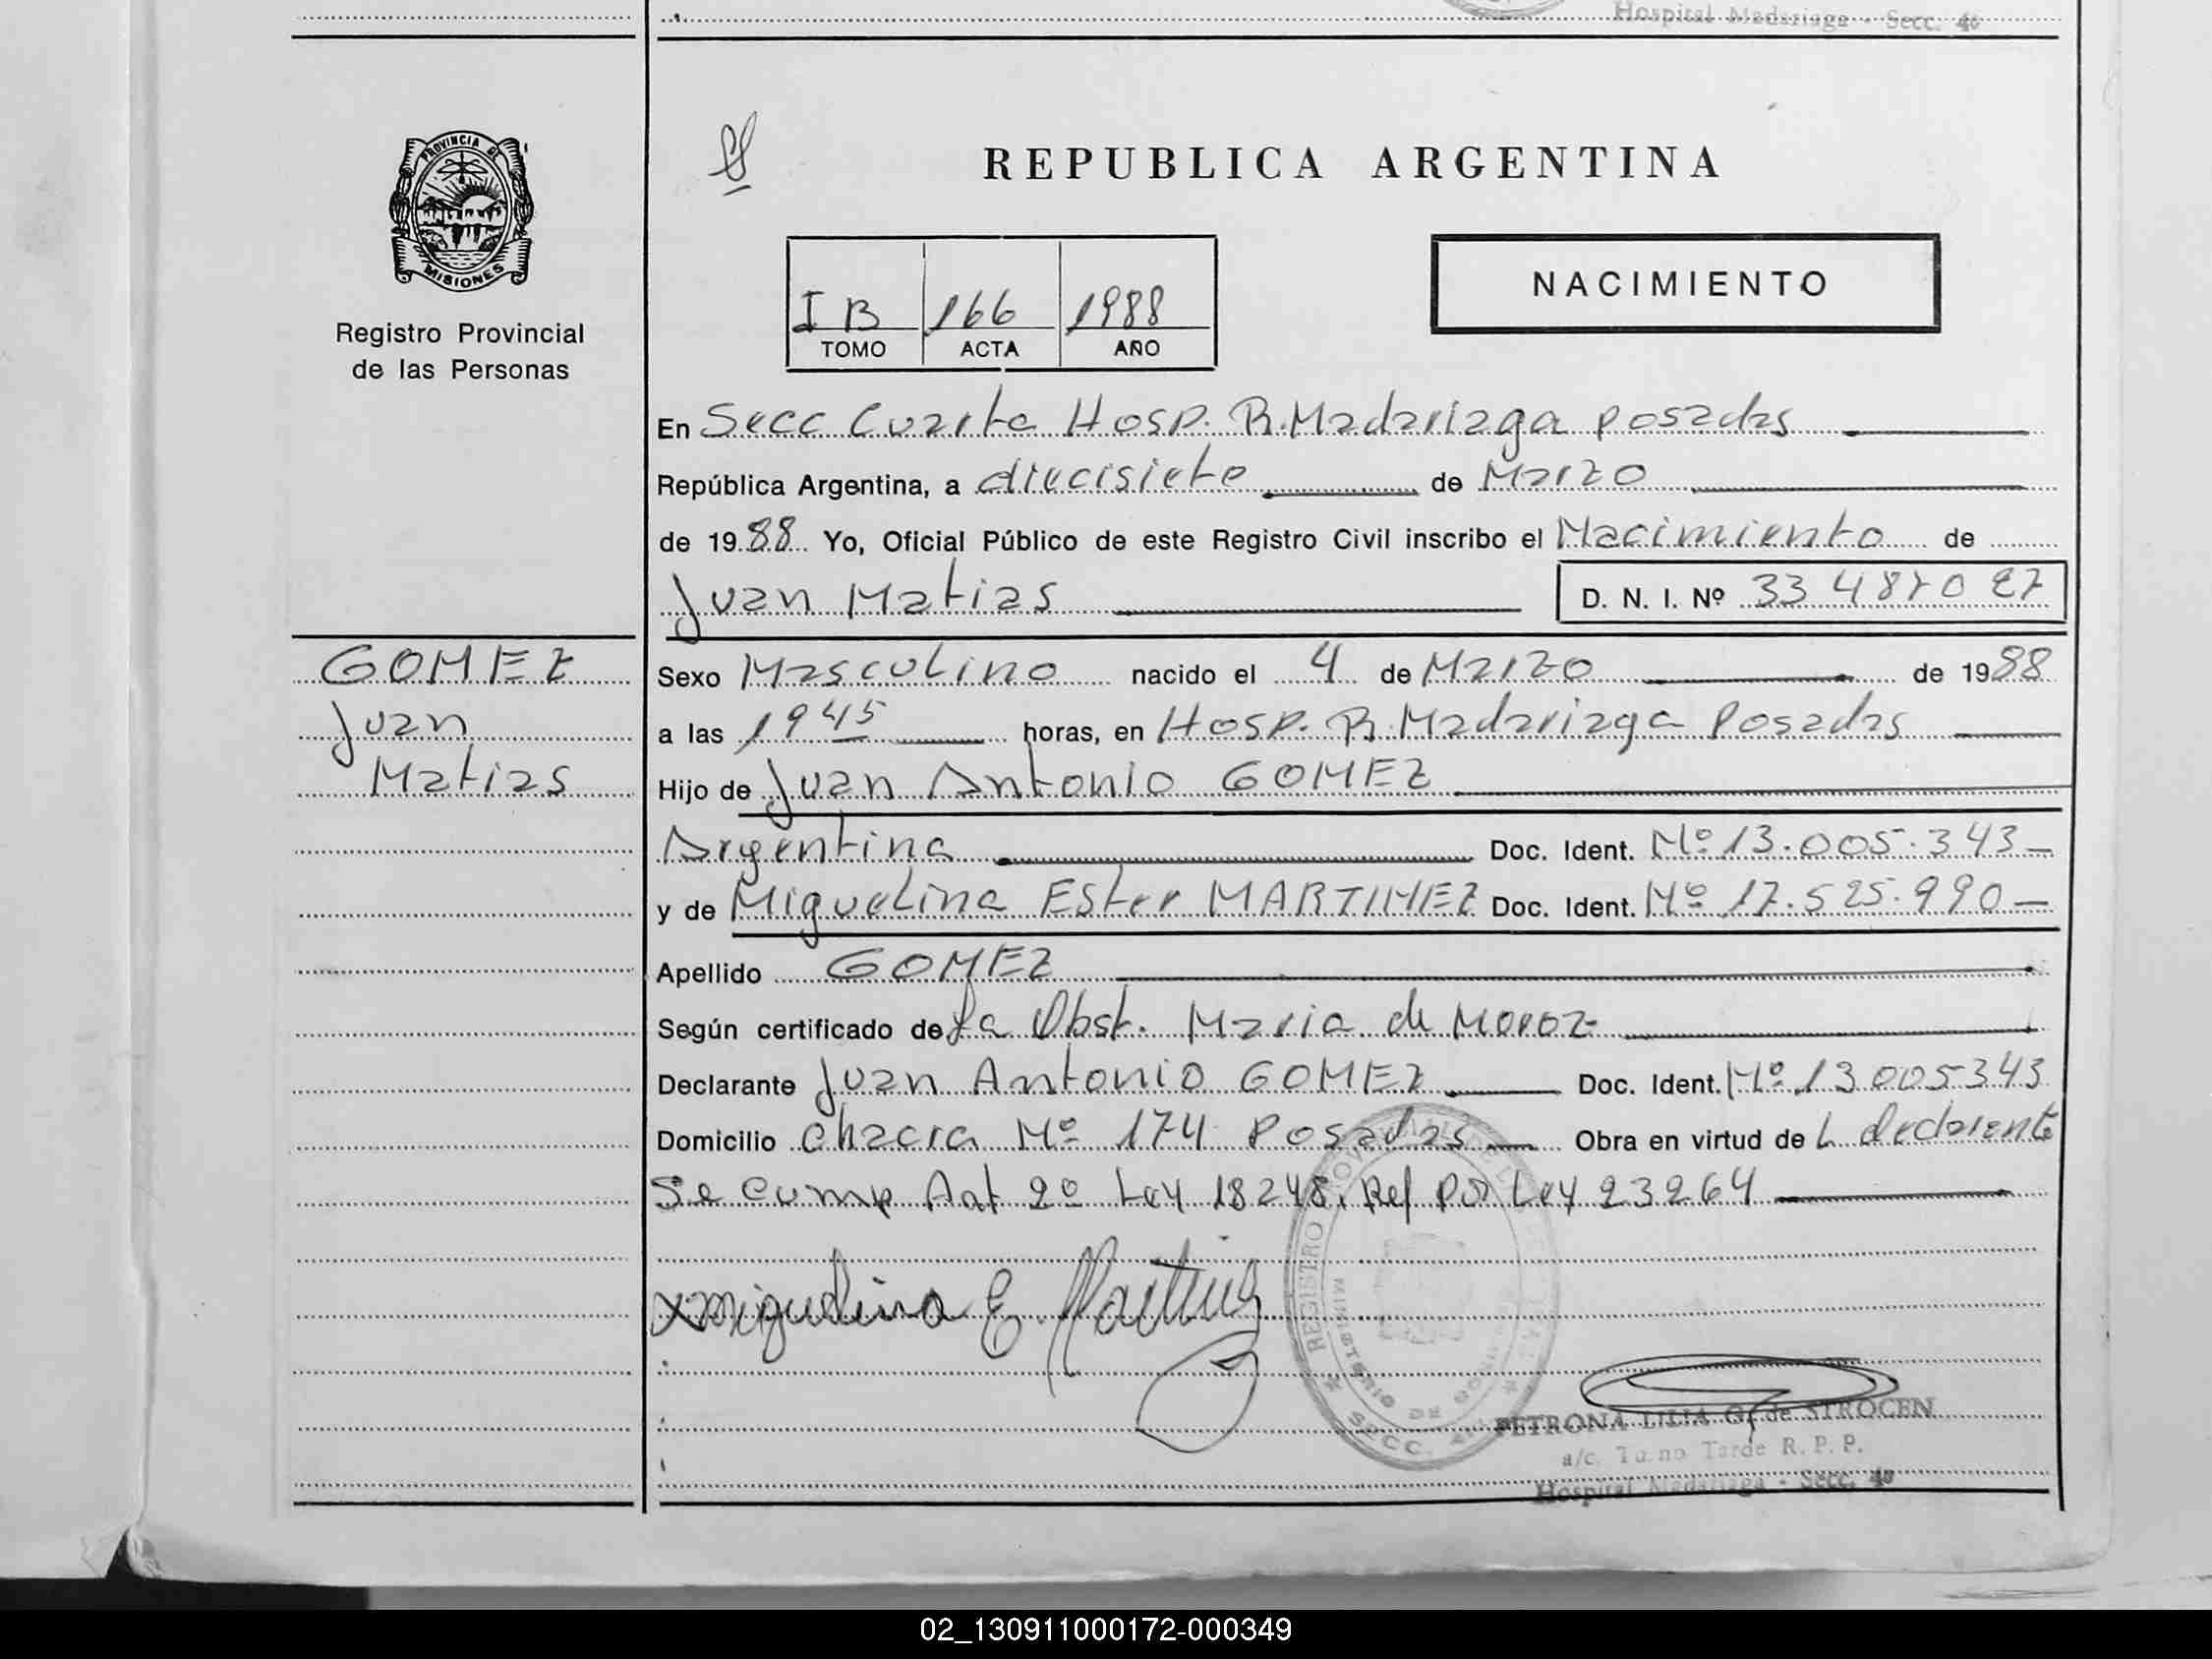 Hospital Madariaga - Secc. 4º
PROVINCIA DE
MISIONES
Registro Provincial
de las Personas
REPUBLICA ARGENTINA
NACIMIENTO
I B 166 1988
TOMO ACTA AÑO
En Secc Cuarta Hosp. R. Madariaga posadas
República Argentina, a diecisiete de Marzo
de 1988 Yo, Oficial Público de este Registro Civil inscribo el Nacimiento de
Juan Matias D. N. I. Nº 33 487 0 27
GOMEZ
Juan
Matias
Sexo Masculino nacido el 4 de Marzo de 1988
a las 19 45 horas, en Hosp. R. Madariaga Posadas
Hijo de Juan Antonio GOMEZ
Argentina Doc. Ident. Nº 13.005.343
y de Miguelina Ester MARTINEZ Doc. Ident. Nº 17.525.990
Apellido GOMEZ
Según certificado de La Obst. Maria de Moroz
Declarante Juan Antonio GOMEZ Doc. Ident. Nº 13005343
Domicilio chacra Nº 174 Posadas Obra en virtud de L declarante
Se cump Art 2º Ley 18248, Ref Por Ley 23264
x Miguelina E. Martinez
REGISTRO PROVINCIAL DE LAS
MINISTERIO DE
SECC. 4
PETRONA LILIA G. de STROCEN
a/c. Turno Tarde R. P. P.
Hospital Madariaga - Secc. 4º
02_130911000172-000349